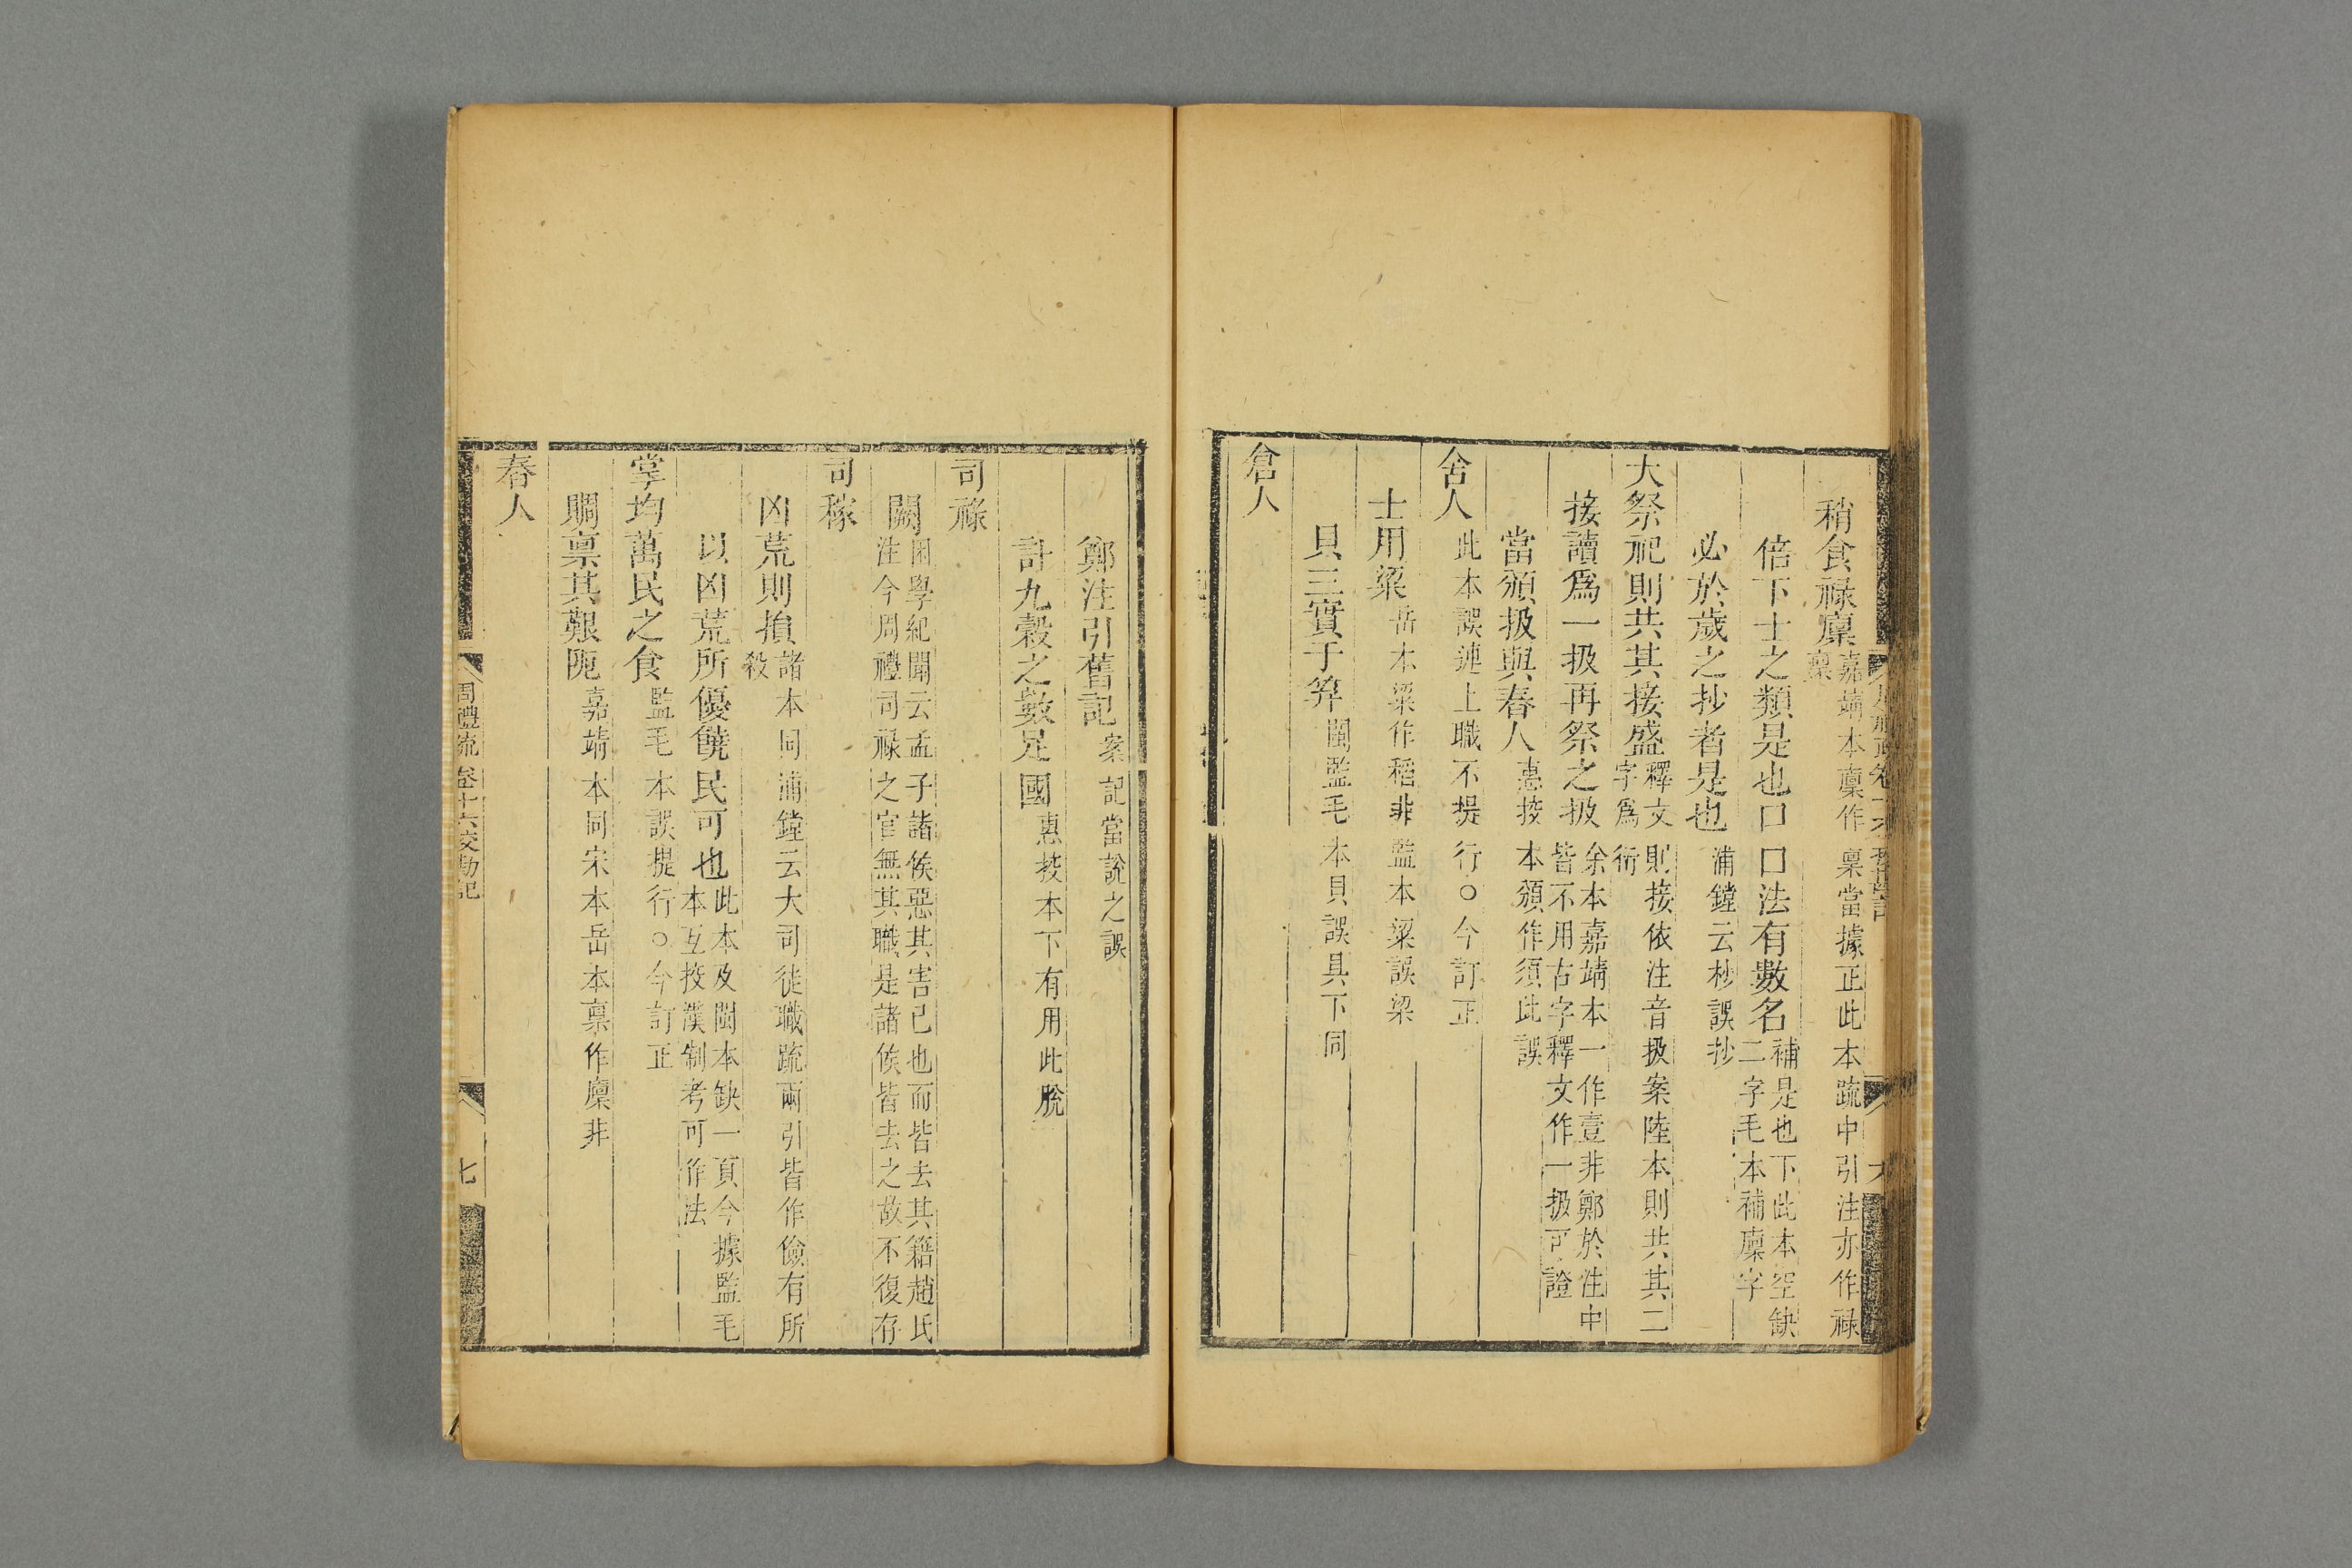 稍食祿廩嘉靖本廩作稟當據正此本疏中引注亦作祿稟
倍下士之類是也口口法有數名補是也下此本空缺二字毛本補廩字
必於歲之抄者是也浦鏜云杪誤抄
大祭祀則共其接盛釋文則接依注音扱案陸本則共其二字爲衍
接讀爲一扱再祭之扱余本嘉靖本一作壹非鄭於注中皆不用古字釋文作一扱可證
當頒扱與舂人惠挍本頒作須此誤
舍人此本誤連上職不提行○今訂正
士用粱岳本粱作稻非監本粱誤梁
貝三實于筭閩監毛本貝誤具下同
倉人
鄭注引舊記案記當說之誤
計九穀之數足國惠挍本下有用此脫
司祿
闕困學紀聞云孟子諸侯惡其害己也而皆去其籍趙氏注今周禮司祿之官無其職是諸侯皆去之故不復存
司稼
凶荒則損諸本同浦鏜云大司徒職疏兩引皆作儉有所殺
以凶荒所優饒民可也此本及閩本缺一頁今據監毛本互挍漢制考可作法
掌均萬民之食監毛本誤提行○今訂正
賙稟其艱阨嘉靖本同宋本岳本稟作廩非
舂人
周禮疏 卷十六校勘記
七